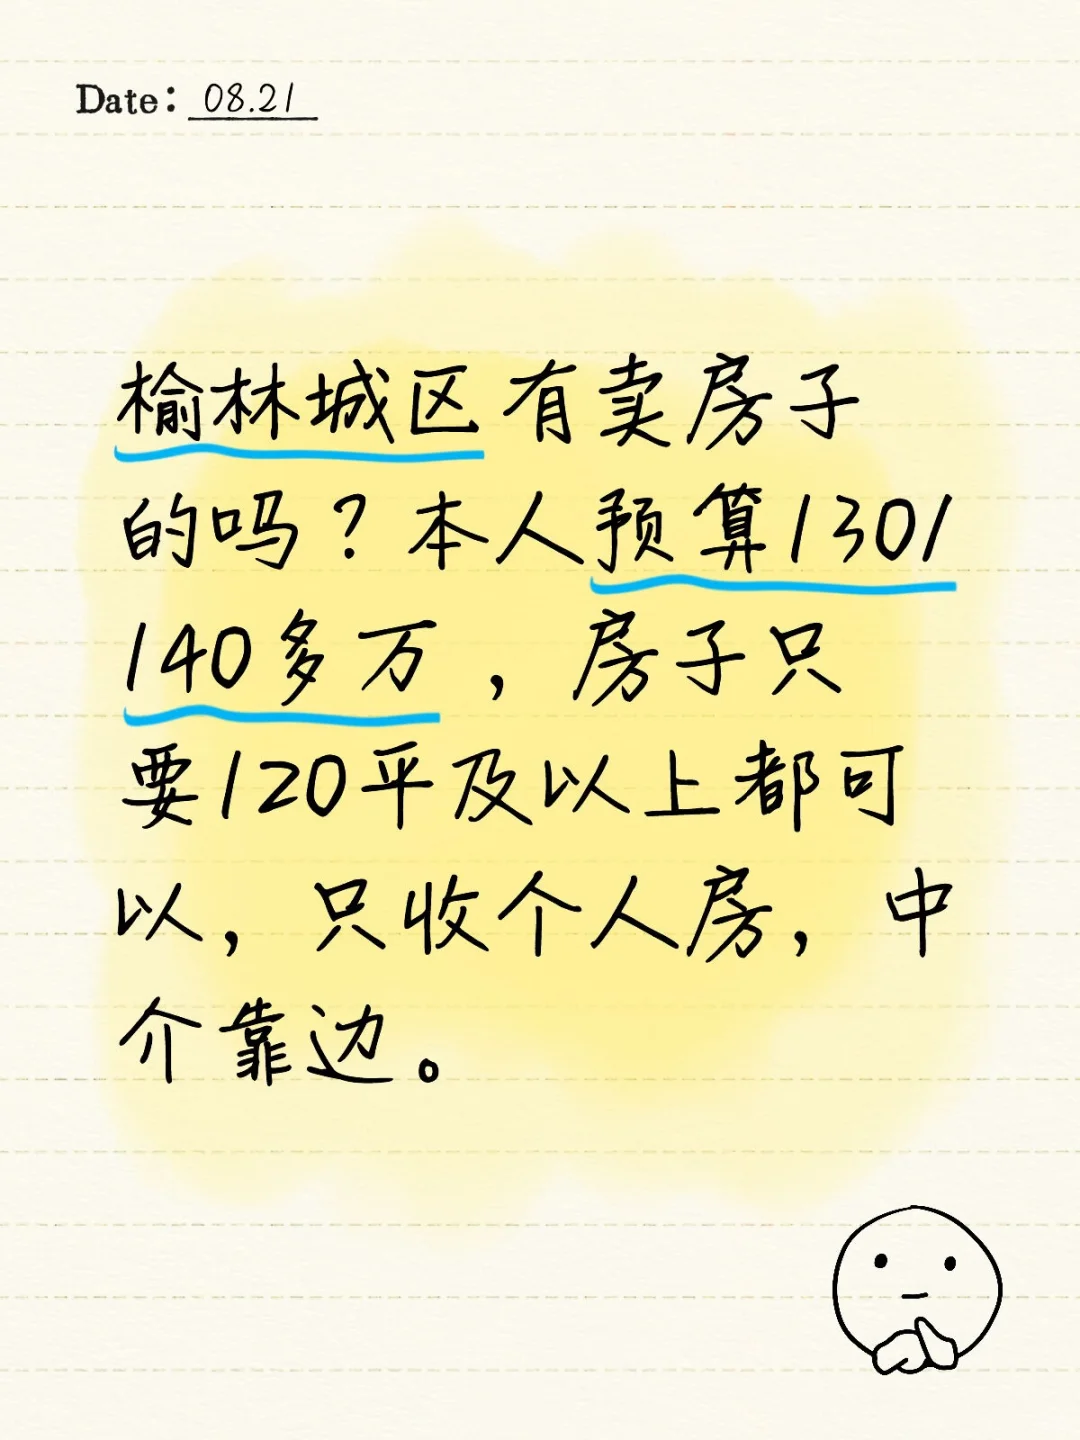 Date: 08.21
榆林城区有卖房子
的吗？本人预算1301
140多万，房子只
要120平及以上都可
以，只收个人房，中
介靠边。